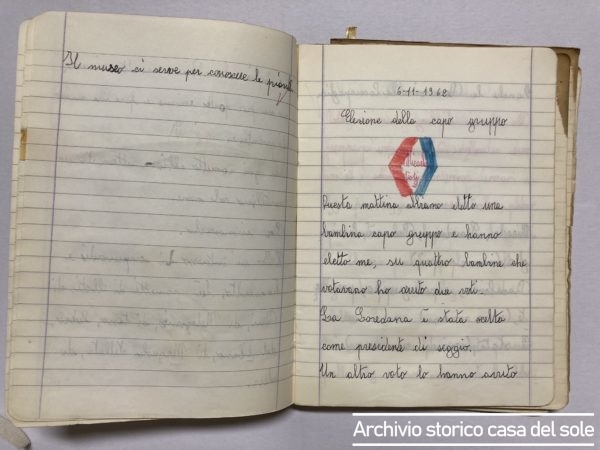 Il museo ci serve per conoscere le
6-11-1962
Elezione della capo gruppo
Questa mattina abbiamo eletto una
bambina capo gruppo e hanno
eletto me, su quattro bambine che
votavano ho avuto due voti.
La Loredana è stata scelta
come presidente di seggio.
Un altro voto lo hanno avuto
Archivio storico casa del sole